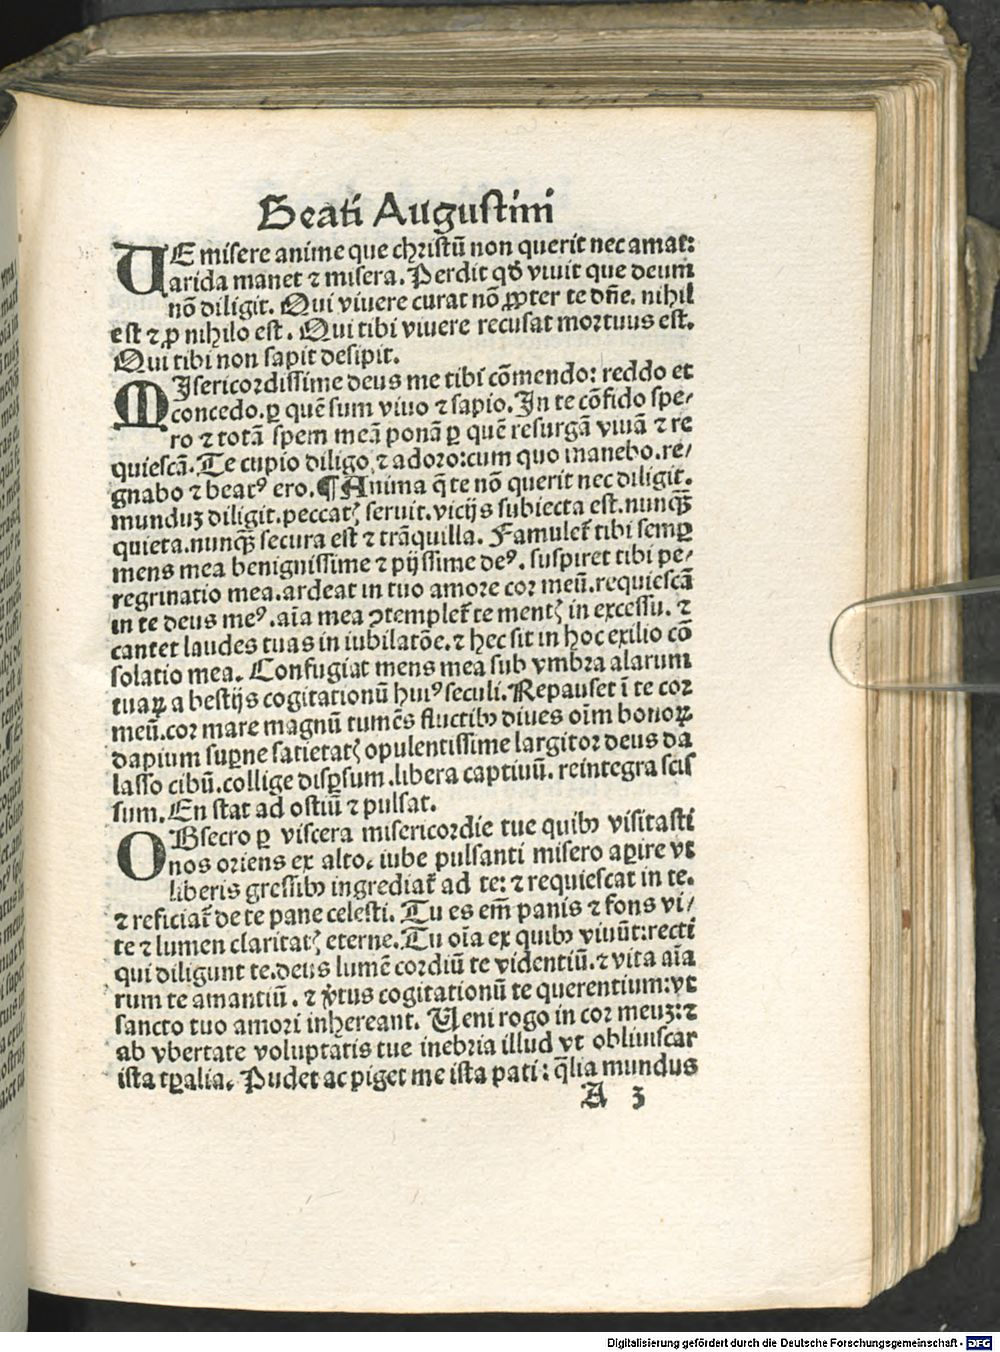 Beati Augustini
UE misere anime que christū non querit nec amat:
arida manet ⁊ misera. Perdit qď vivit que deum
nō diligit. Qui vivere curat nō ꝓpter te dn̄e. nihil
est ⁊ ꝓ nihilo est. Qui tibi vivere recusat moꝛtuus est.
Qui tibi non sapit desipit.
MIsericoꝛdissime deus me tibi cōmendo: reddo et
concedo. ꝑ quē sum vivo ⁊ sapio. In te cōfido spe/
ro ⁊ totā spem meā ponā ꝑ quē resurgā vivā ⁊ re
quiescā. Te cupio diligo ⁊ adoro: cum quo manebo. re/
gnabo ⁊ beatꝰ ero. ¶ Anima q̄ te nō querit nec diligit.
munduꝫ diligit. peccatꝭ seruit. vicijs subiecta est. nunqꝫ̄
quieta. nunqꝫ̄ secura est ⁊ trāquilla. Famulet᷑ tibi semꝑ
mens mea benignissime ⁊ pijssime deꝰ. suspiret tibi pe/
regrinatio mea. ardeat in tuo amoꝛe coꝛ meū. requiescā
in te deus meꝰ. aīa mea ꝯtemplet᷑ te mentꝭ in excessu. ⁊
cantet laudes tuas in iubilatōe. ⁊ hec sit in hoc exilio cō
solatio mea. Confugiat mens mea sub vmbꝛa alarum
tuaꝝ a bestijs cogitationū huiꝰ seculi. Repauset ī te coꝛ
meū. coꝛ mare magnū tumēs fluctibꝰ diues oīm bonoꝝ
dapium suꝑne satietatꝭ opulentissime largitoꝛ deus da
lasso cibū. collige disꝑsum. libera captiuū. reintegra scis
sum. En stat ad ostiū ⁊ pulsat.
OBsecro ꝑ viscera misericoꝛdie tue quibꝰ visitasti
nos oriens ex alto. iube pulsanti misero aꝑire vt
liberis gressibꝰ ingrediat᷑ ad te: ⁊ requiescat in te.
⁊ reficiat᷑ de te pane celesti. Tu es em̄ panis ⁊ fons vi/
te ⁊ lumen claritatꝭ eterne. Tu oīa ex quibꝰ viuūt: recti
qui diligunt te. deus lumē coꝛdiū te videntiū. ⁊ vita aīa
rum te amantiū. ⁊ v̓tus cogitationū te querentium: vt
sancto tuo amoꝛi inhereant. Veni rogo in coꝛ meuꝫ: ⁊
ab vbertate voluptatis tue inebꝛia illud vt obliuiscar
ista tꝑalia. Pudet ac piget me ista pati: q̄lia mundus
A 3
Digitalisierung gefördert durch die Deutsche Forschungsgemeinschaft - DFG